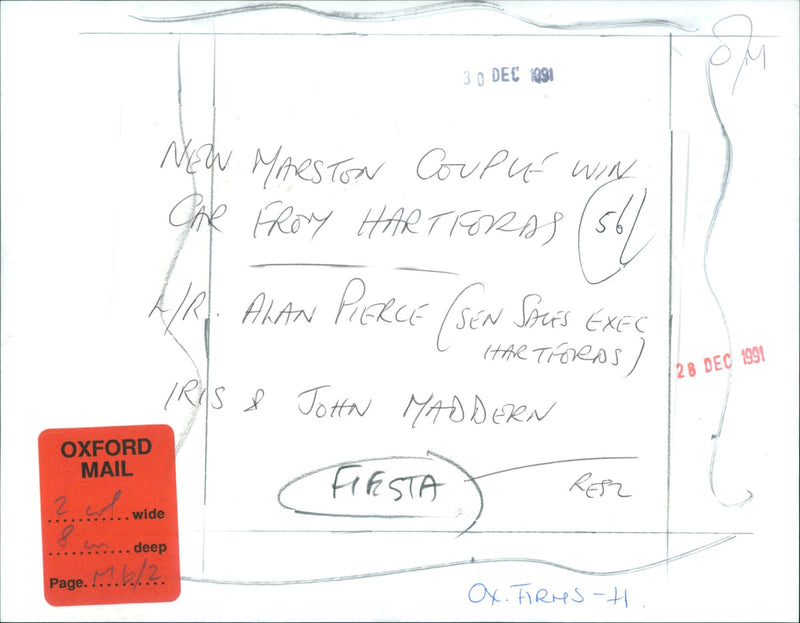 30 DEC 1991
O/M
NEW MARSTON COUPLE WIN
CAR FROM HARTFORDS (56)
L/R. ALAN PIERCE (SEN SALES EXEC
HARTFORDS)
28 DEC 1991
IRIS & JOHN MADDERN
FIESTA
OXFORD
MAIL
2 col wide
8 in deep
Page M6/2
OX. FIRMS - H.